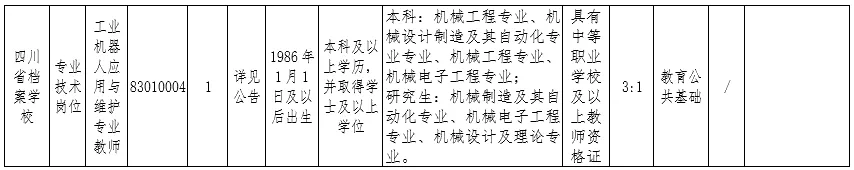 四川
省档
案学
校
专业
技术
岗位
工业
机器
人应
用与
维护
专业
教师
83010004
1
详见
公告
1986 年
1 月 1
日及以
后出生
本科及以
上学历，
并取得学
士及以上
学位
本科：机械工程专业、机
械设计制造及其自动化专
业专业、机械工程专业、
机械电子工程专业；
研究生：机械制造及其自
动化专业、机械电子工程
专业、机械设计及理论专
业。
具有
中等
职业
学校
及以
上教
师资
格证
3:1
教育公
共基础
/